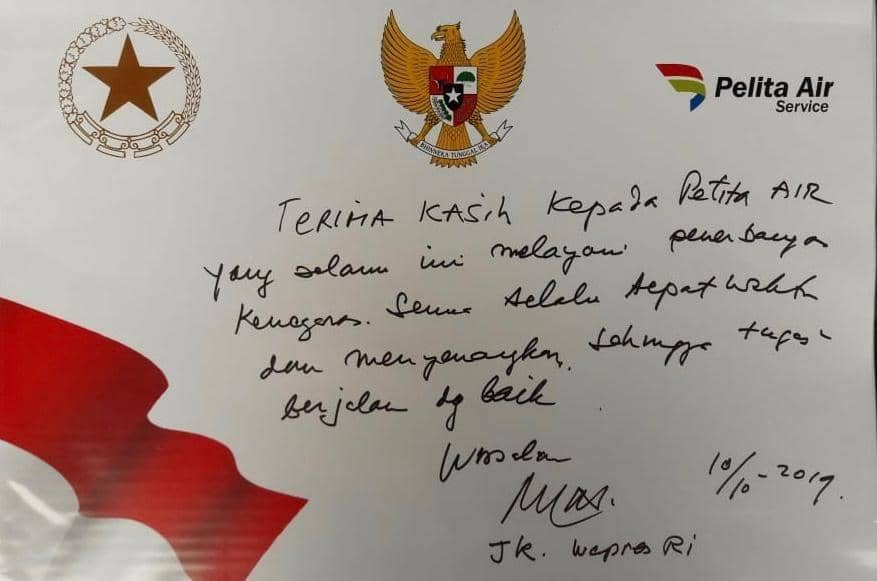 BHINNEKA TUNGGAL IKA
Pelita Air
Service
TERIMA KASIH Kepada Pelita AIR
yang selama ini melayani penerbangan
Kenegaraan. Semua selalu tepat waktu
dan menyenangkan, sehingga tugas-
berjalan dg baik.
Wassalam
10/10-2019.
JK. Wapres RI